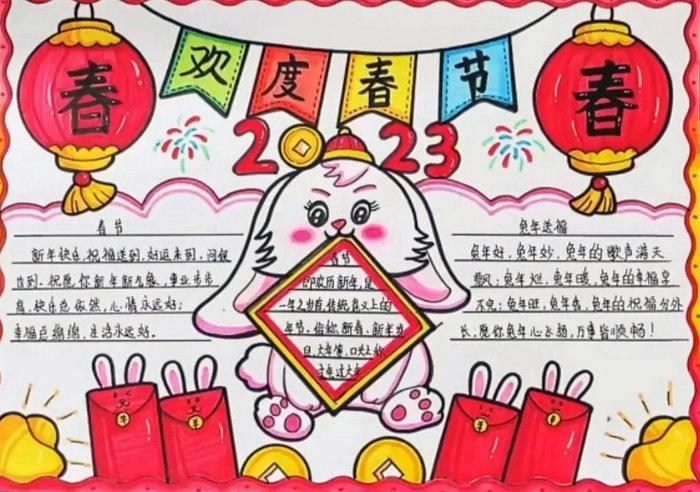 欢度春节
春
春
2023
春节
新年快乐,祝福送到,好运来到,问候
也到,祝愿你新年新气象,事业步步
高,快乐总依然,心情永远好;
幸福总绵绵,生活永远好.
春节
即农历新年,是
一年之岁首,传统意义上的
年节.俗称新春、新年岁
旦,大年
过大年
兔年送福
兔年好,兔年妙,兔年的歌声满天
飘;兔年红,兔年暖,兔年的幸福享
不完;兔年旺,兔年春,兔年的祝福分外
长,愿你兔年心飞扬,万事皆顺畅!